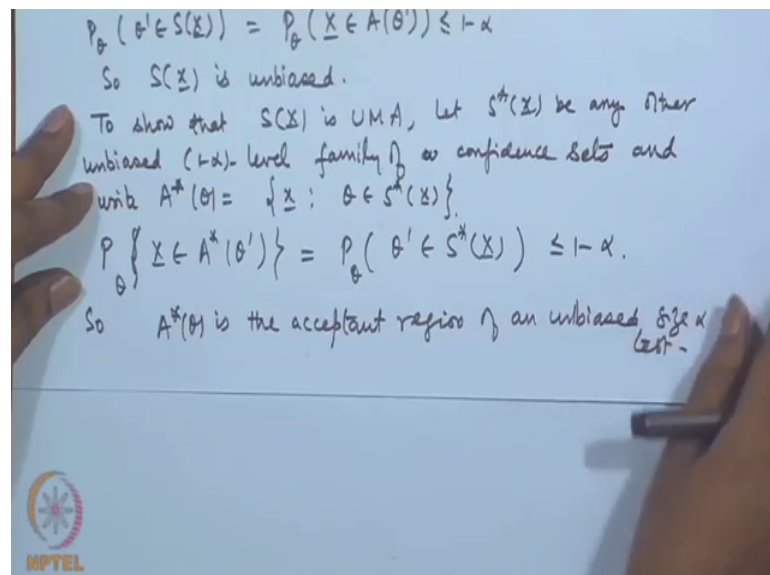 P_θ (θ' ∈ S(X)) = P_θ (X ∈ A(θ')) ≤ 1-α
So S(X) is unbiased.
To show that S(X) is UMA, Let S*(X) be any other
unbiased (1-α)-level family of confidence sets and
write A*(θ) = {x : θ ∈ S*(x)}.
P_θ {X ∈ A*(θ')} = P_θ (θ' ∈ S*(X)) ≤ 1-α.
So A*(θ) is the acceptant region of an unbiased size α
test.
NPTEL